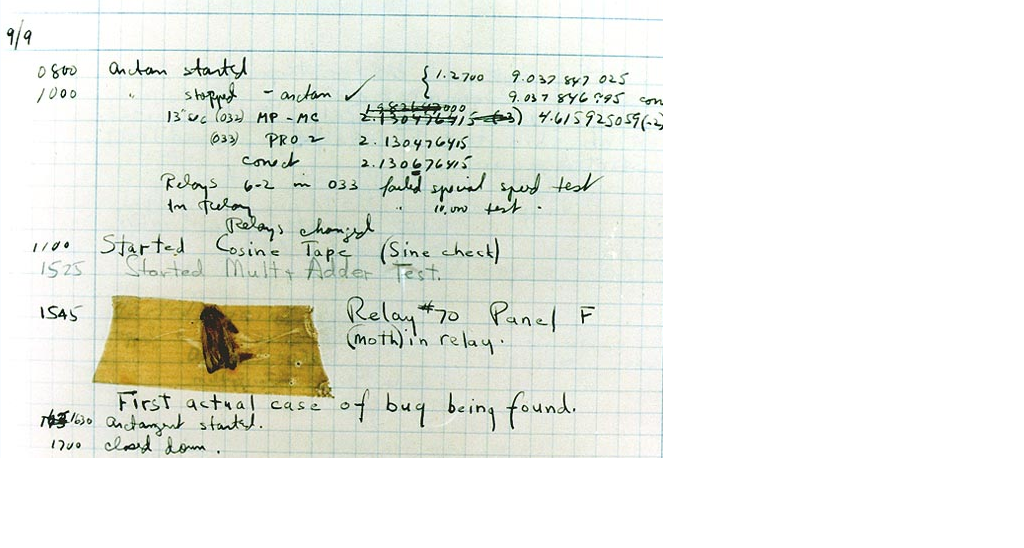 9/9
0800 arctan started { 1.2700 9.037 847 025
1000 " stopped - arctan ✓ 9.037 846 995 con
1.982647000
13"uc (032) MP - MC 2.130476415 (-3) 4.615925059(-2)
(033) PRO 2 2.130476415
conect 2.130676415
Relays 6-2 in 033 failed special speed test
In Relay " 10.000 test .
Relays changed
1100 Started Cosine Tape (Sine check)
1525 Started Mult+ Adder Test.
1545 Relay #70 Panel F
(moth) in relay.
First actual case of bug being found.
1630 arctangent started.
1700 closed down.